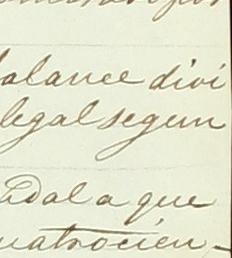 alance divi
legal segun
dal a que
uatrocien-